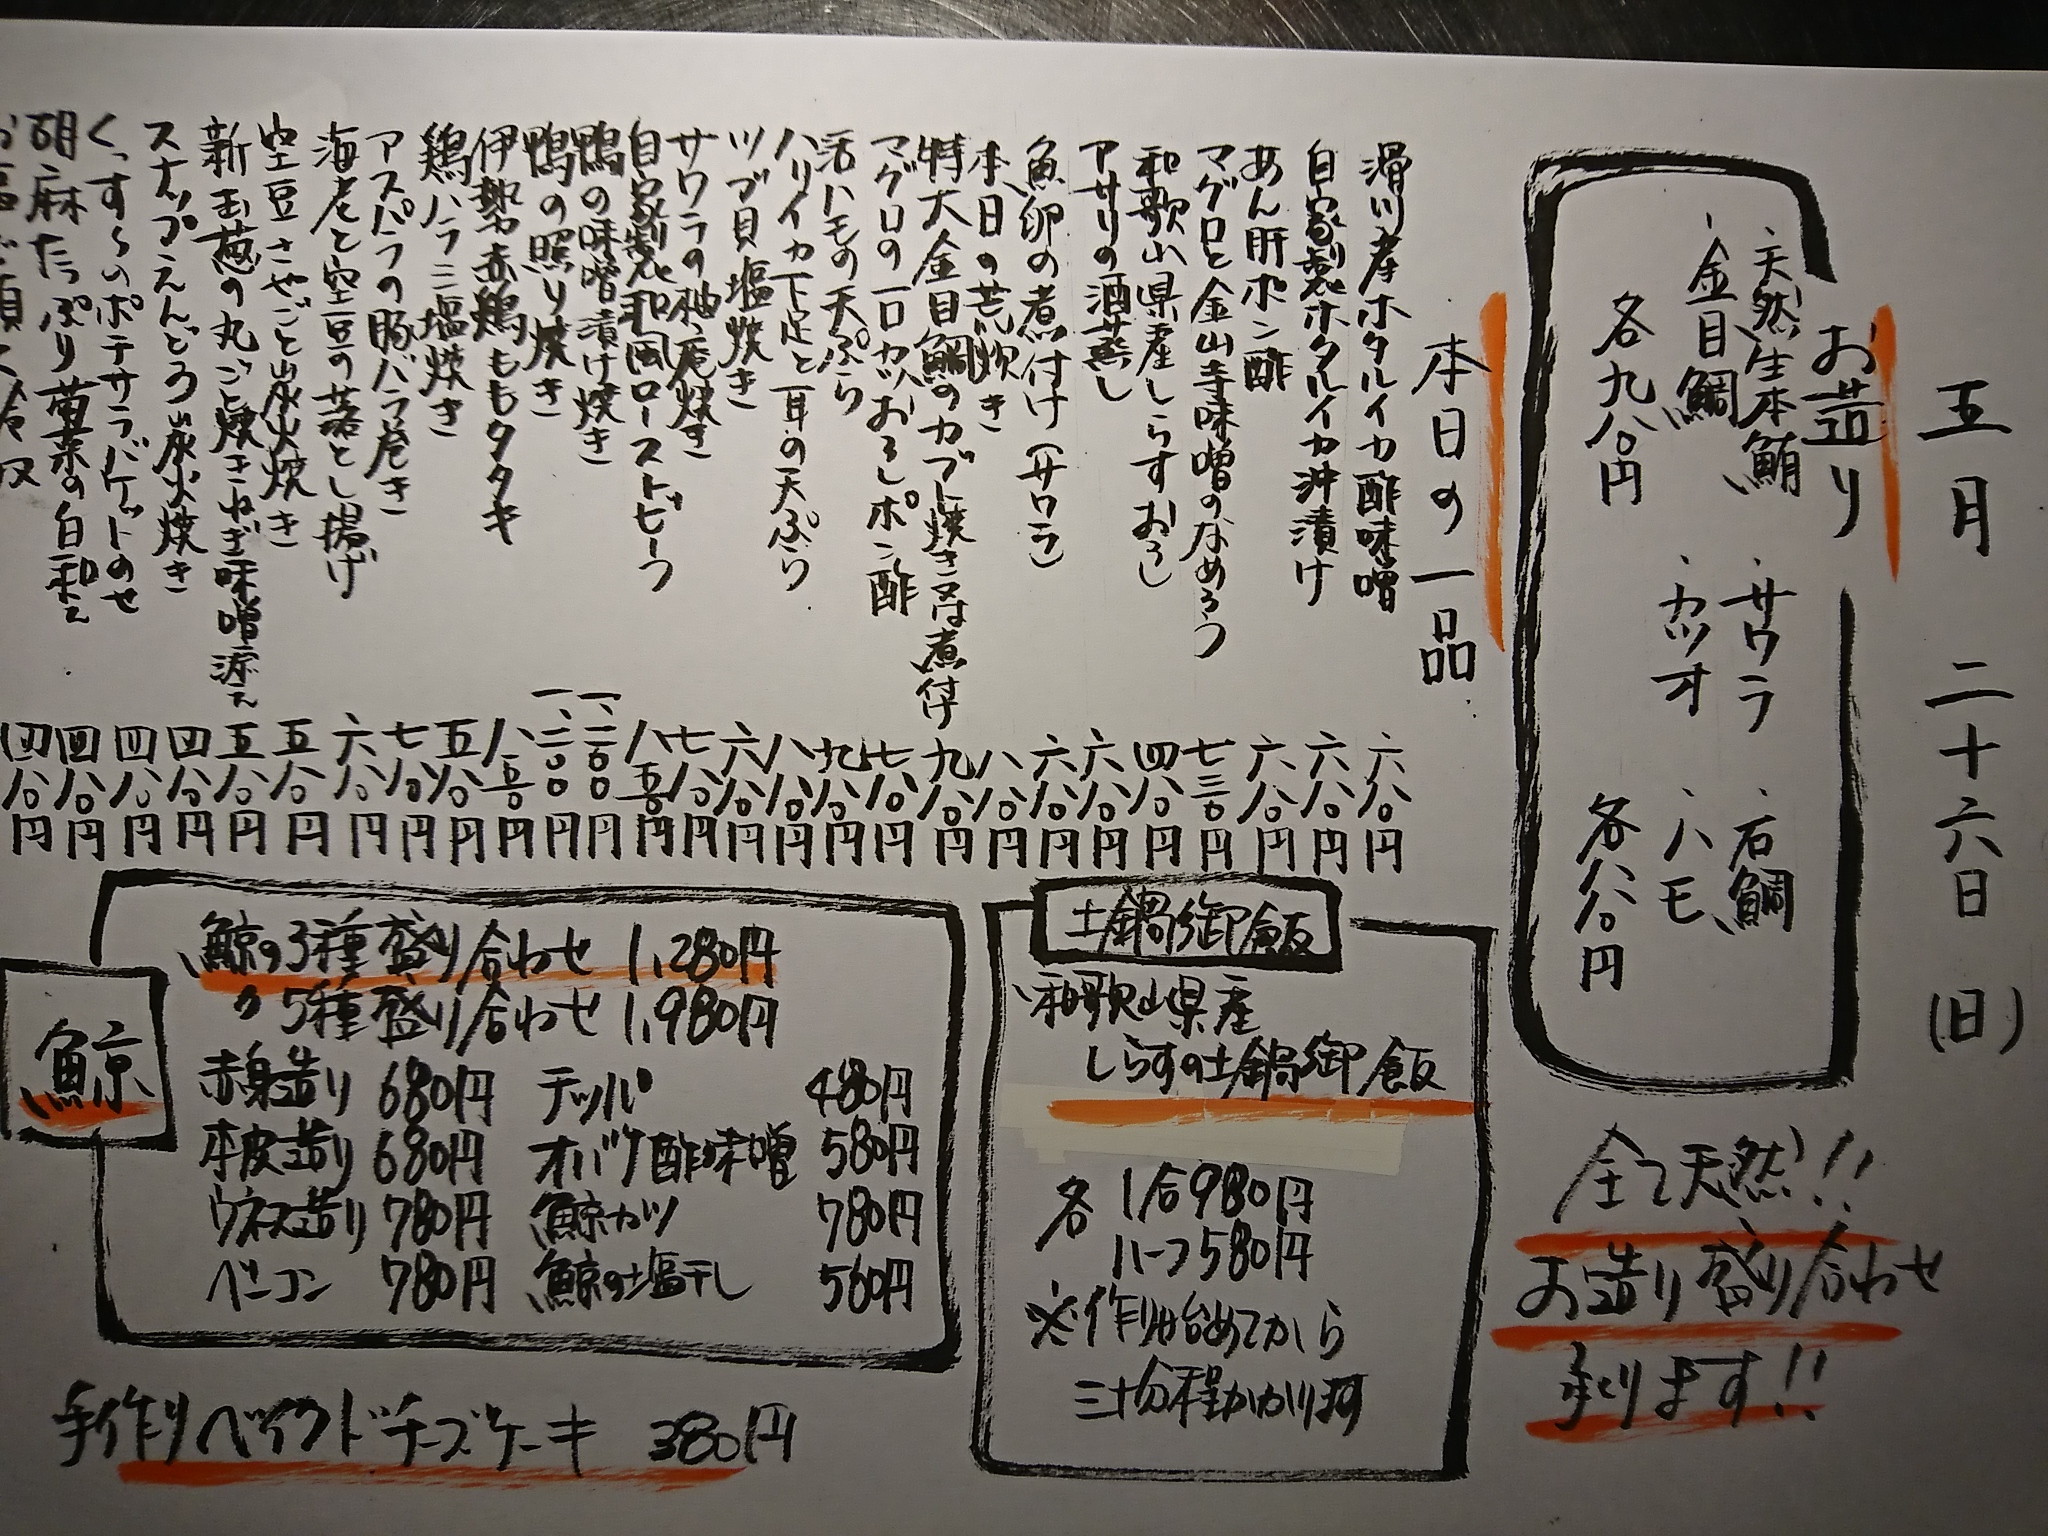 五月 二十六日(日)
お造り
・天然生本鮪 ・サワラ ・石鯛
・金目鯛 ・カツオ ・ハモ
各九八〇円 各八八〇円
全て天然!!
お造り盛り合わせ
承ります!!
本日の一品
滑川産ホタルイカ酢味噌 六八〇円
自家製ホタルイカ沖漬け 六八〇円
あん肝ポン酢 六八〇円
マグロと金山寺味噌のなめろう 七三〇円
和歌山県産しらすおろし 四八〇円
アサリの酒蒸し 六八〇円
魚卵の煮付け(サワラ) 六八〇円
本日の荒炊き 八八〇円
特大金目鯛のカブト焼き又は煮付け 九八〇円
マグロの一口カツおろしポン酢 七八〇円
活ハモの天ぷら 九八〇円
ハリイカ下足と耳の天ぷら 八八〇円
ツブ貝塩焼き 六八〇円
サワラの柚庵焼き 七八〇円
自家製和風ローストビーフ 八五〇円
鴨の味噌漬け焼き 一、二〇〇円
鴨の照り焼き 一、二〇〇円
伊勢赤鶏ももタタキ 八五〇円
鶏ハラミ塩焼き 五八〇円
アスパラの豚バラ巻き 七八〇円
海老と空豆の落とし揚げ 六八〇円
空豆さやごと炭火焼き 五八〇円
新玉葱の丸ごと焼きねぎ味噌添え 五八〇円
スナップえんどう炭火焼き 四八〇円
くっすんのポテサラバケットのせ 四八〇円
胡麻たっぷり菊菜の白和え 四八〇円
四八〇円
土鍋御飯
和歌山県産
しらすの土鍋御飯
各 1合980円
ハーフ580円
※作り始めてから
三十分程かかります
鯨
鯨の3種盛り合わせ 1,280円
〃 5種盛り合わせ 1,980円
赤身造り 680円 テッパ 480円
本皮造り 680円 オバケ酢味噌 580円
ウネス造り 780円 鯨カツ 780円
ベーコン 780円 鯨の塩干し 560円
手作りベイクドチーズケーキ 380円